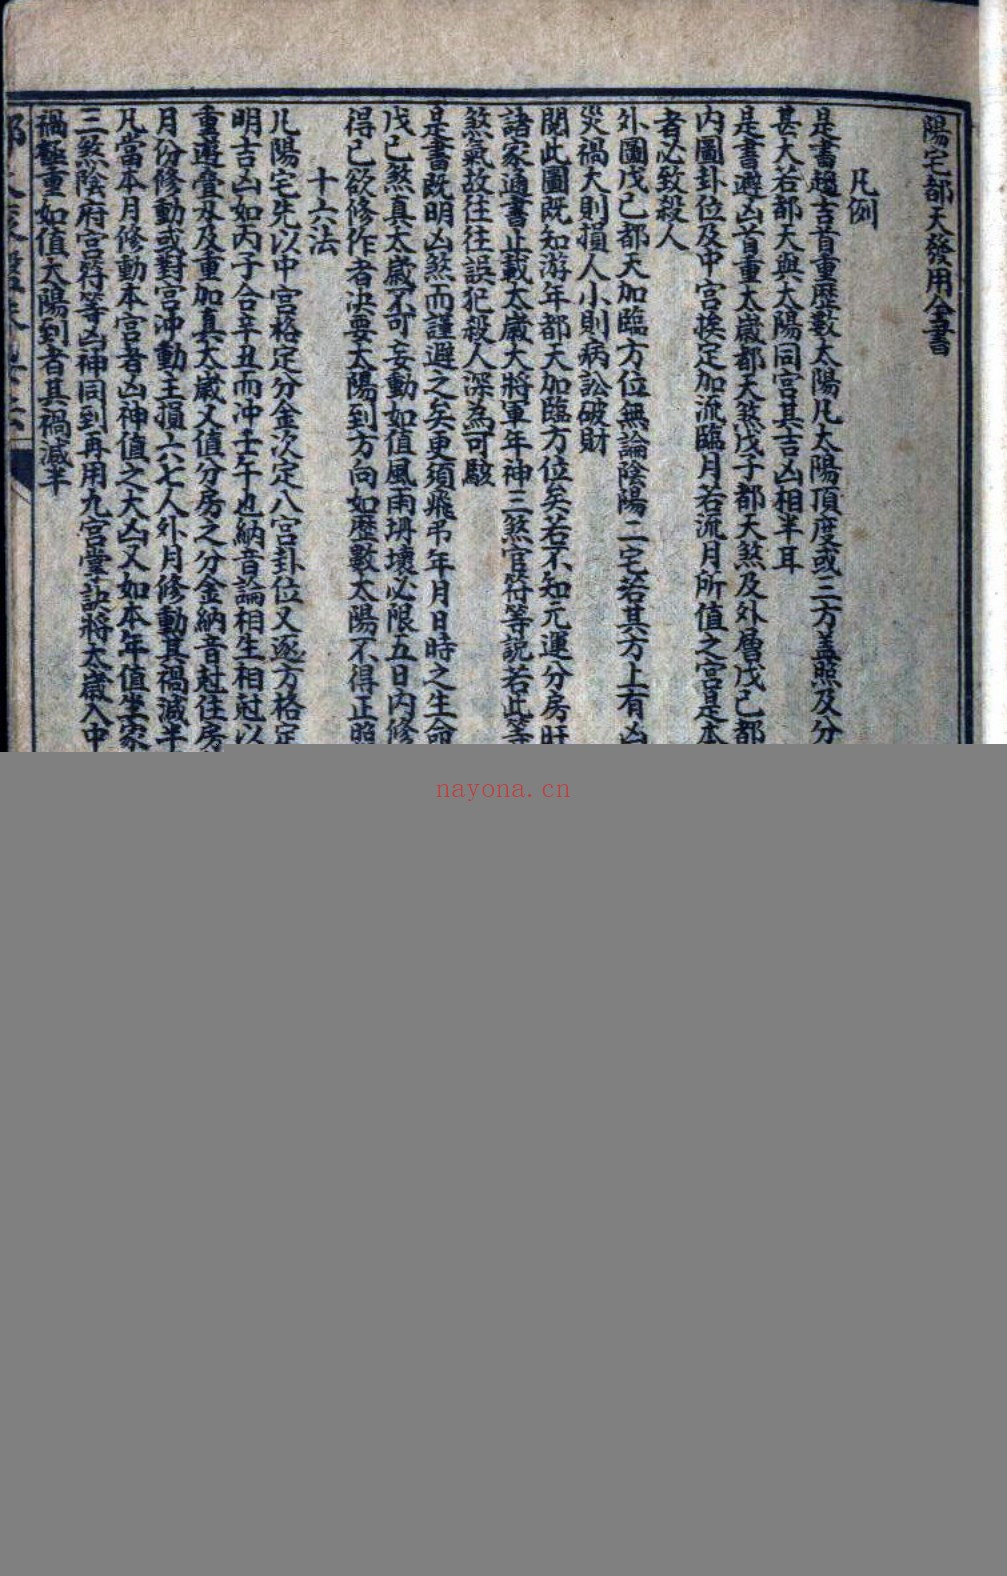 陽宅都天發用全書
凡例
是書趨吉首重歷數太陽凡太陽頂度或三方蓋照及分
甚大若都天與太陽同宮其吉凶相半耳
是書避凶首重太歲都天煞戊子都天煞及外層戊己都
內圖卦位及中宮挨定加流臨月若流月所值之宮是本
者必致殺人
外圖戊己都天加臨方位無論陰陽二宅若其方上有凶
災禍大則損人小則病訟破財
閱此圖既知游年都天加臨方位矣若不知元運分房旺
諸家通書止載太歲大將軍年神三煞官符等說若此等
煞氣故往往誤犯殺人深為可駭
是書既明凶煞而謹避之矣更須飛吊年月日時之生命
戊己煞真太歲不可妄動如值風雨坍壞必限五日內修
得已欲修作者決要太陽到方向如歷數太陽不得正照
十六法
凡陽宅先以中宮格定分金次定八宮卦位又逐方格定
明吉凶如丙子合辛丑而沖壬午也納音論相生相尅以
重遁疊及及重加真太歲又值分房之分金納音尅住房
月份修動或對宮沖動主損六七人外月修動其禍減半
凡當本月修動本宮者凶神值之大凶又如本年值坐家
三煞陰府宮符等凶神同到再用九宮掌訣將太歲入中
禍極重如值太陽到者其禍減半
nayona.cn